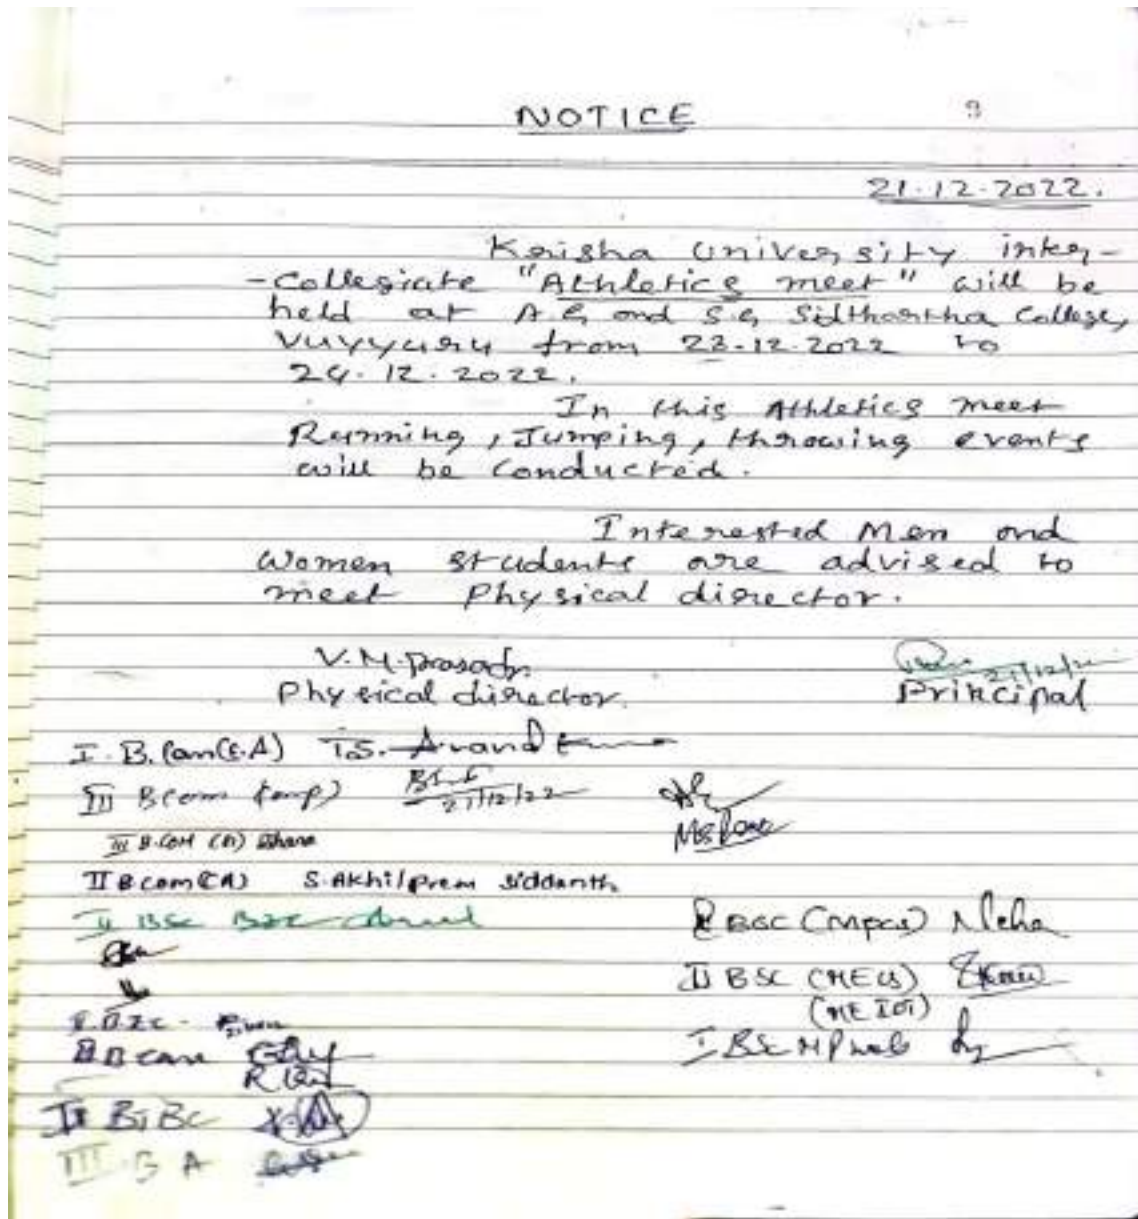 NOTICE
9
21.12.2022.
Krisha University inter-
-Collegiate "Athletics meet" will be
held at A.G and S.G Sidthartha College,
Vuyyuru from 23.12.2022 to
24.12.2022.
In this Athletics meet
Running, Jumping, throwing events
will be conducted.
Interested Men and
Women students are advised to
meet Physical director.
V.M.Prasad
21/12/22
Physical director.
Principal
I. B.Com(C.A) T.S. Anand
III BCom
21/12/22
III B.COM
II B.com(CA) S.Akhil prem siddanth
II BSc BZC
BSC (Mpcs) Neha
II BSC (MECs)
(ME IOT)
I BSc
II BTBC
III B A